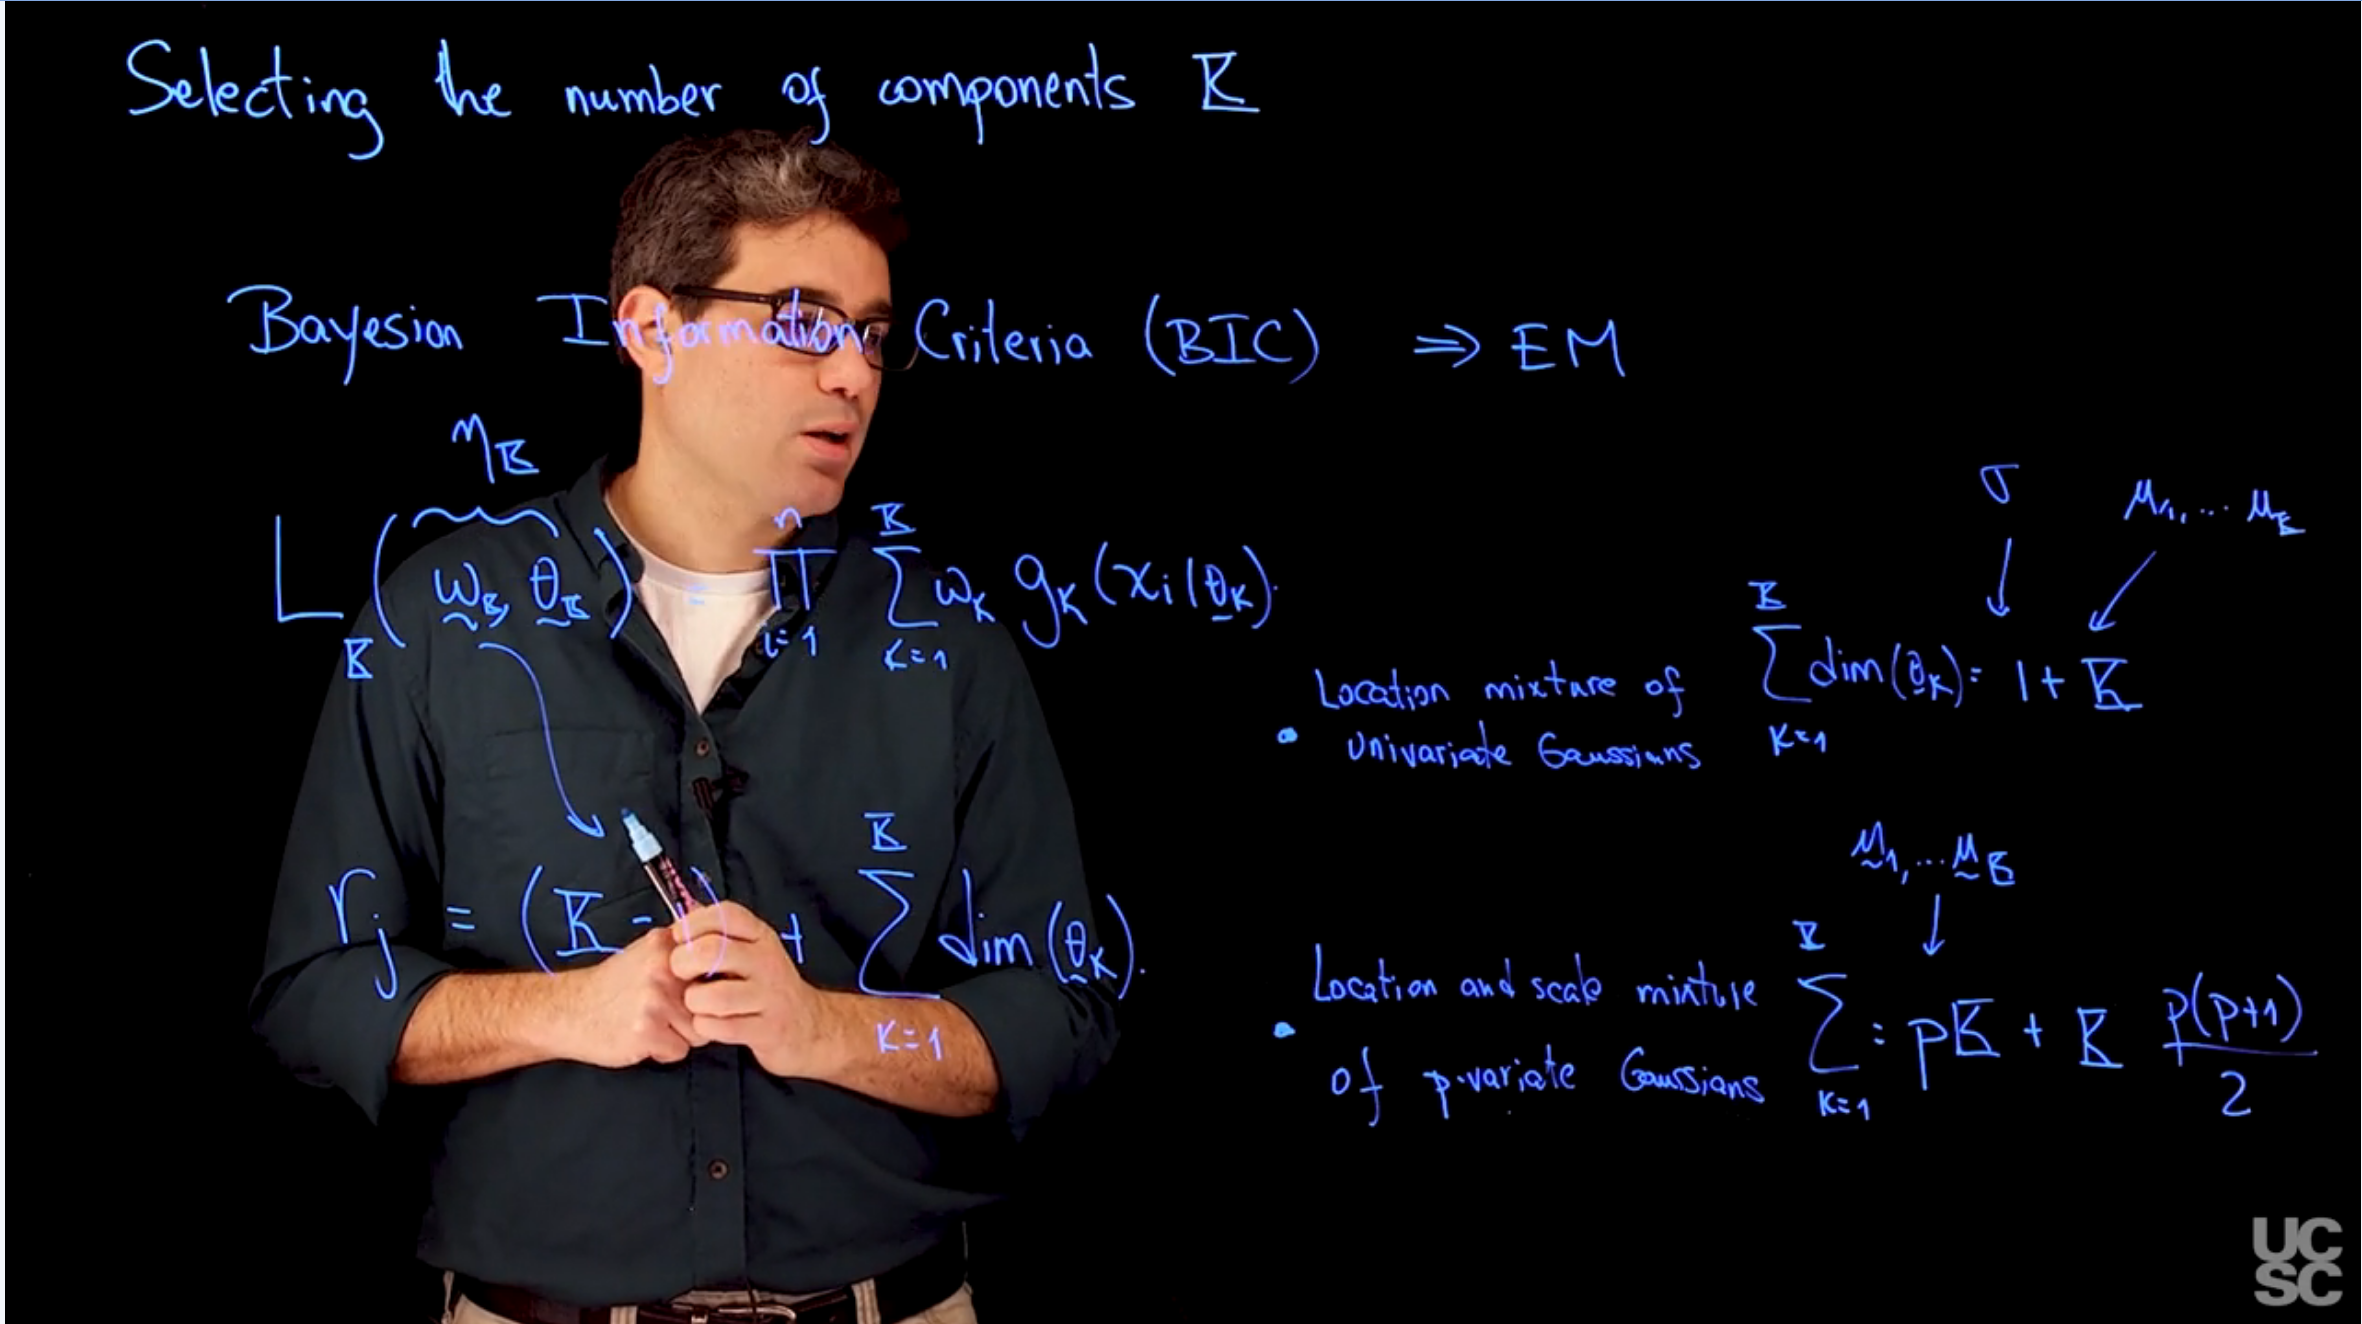 Selecting the number of components K
Bayesian Information Criteria (BIC) ⇒ EM
η_K
L_K(ω_K, θ_K) = ∏_{i=1}^{n} ∑_{k=1}^{K} ω_k g_k(x_i | θ_k).
r_j = (K - 1) + ∑_{k=1}^{K} dim(θ_k).
σ μ_1, ... μ_K
• Location mixture of
univariate Gaussians
∑_{k=1}^{K} dim(θ_k) = 1 + K
μ_1, ... μ_K
• Location and scale mixture
of p-variate Gaussians
∑_{k=1}^{K} = pK + K p(p+1)/2
UC
SC